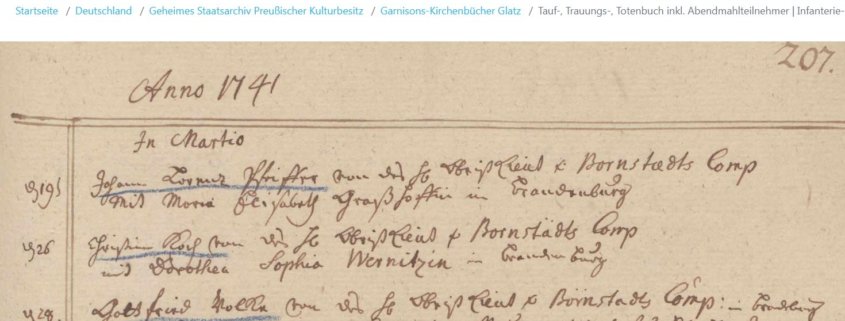 Startseite / Deutschland / Geheimes Staatsarchiv Preußischer Kulturbesitz / Garnisons-Kirchenbücher Glatz / Tauf-, Trauungs-, Totenbuch inkl. Abendmahlteilnehmer | Infanterie-
207.
Anno 1741
In Martio
Johann Lorenz Pfeiffer von des H Obrist Lieut v Bornstædts Comp
mit Maria Elisabeth Graßhoffin in Brandenburg
26 Christian Koch von des H Obrist Lieut v Bornstädts Comp
mit Dorothea Sophia Wernitzen in Brandenburg
28. Gottfried von des H Obrist Lieut v Bornstadts Comp: in Brandenburg